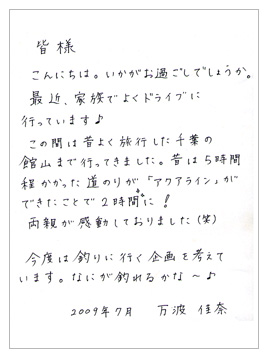 皆様
こんにちは。いかがお過ごしでしょうか。
最近、家族でよくドライブに
行っています♪
この間は昔よく旅行した千葉の
館山まで行ってきました。昔は5時間
程かかった道のりが「アクアライン」が
できたことで2時間に!
両親が感動しておりました(笑)
今度は釣りに行く企画を考えて
います。なにが釣れるかな〜♪
2009年7月 万波 佳奈